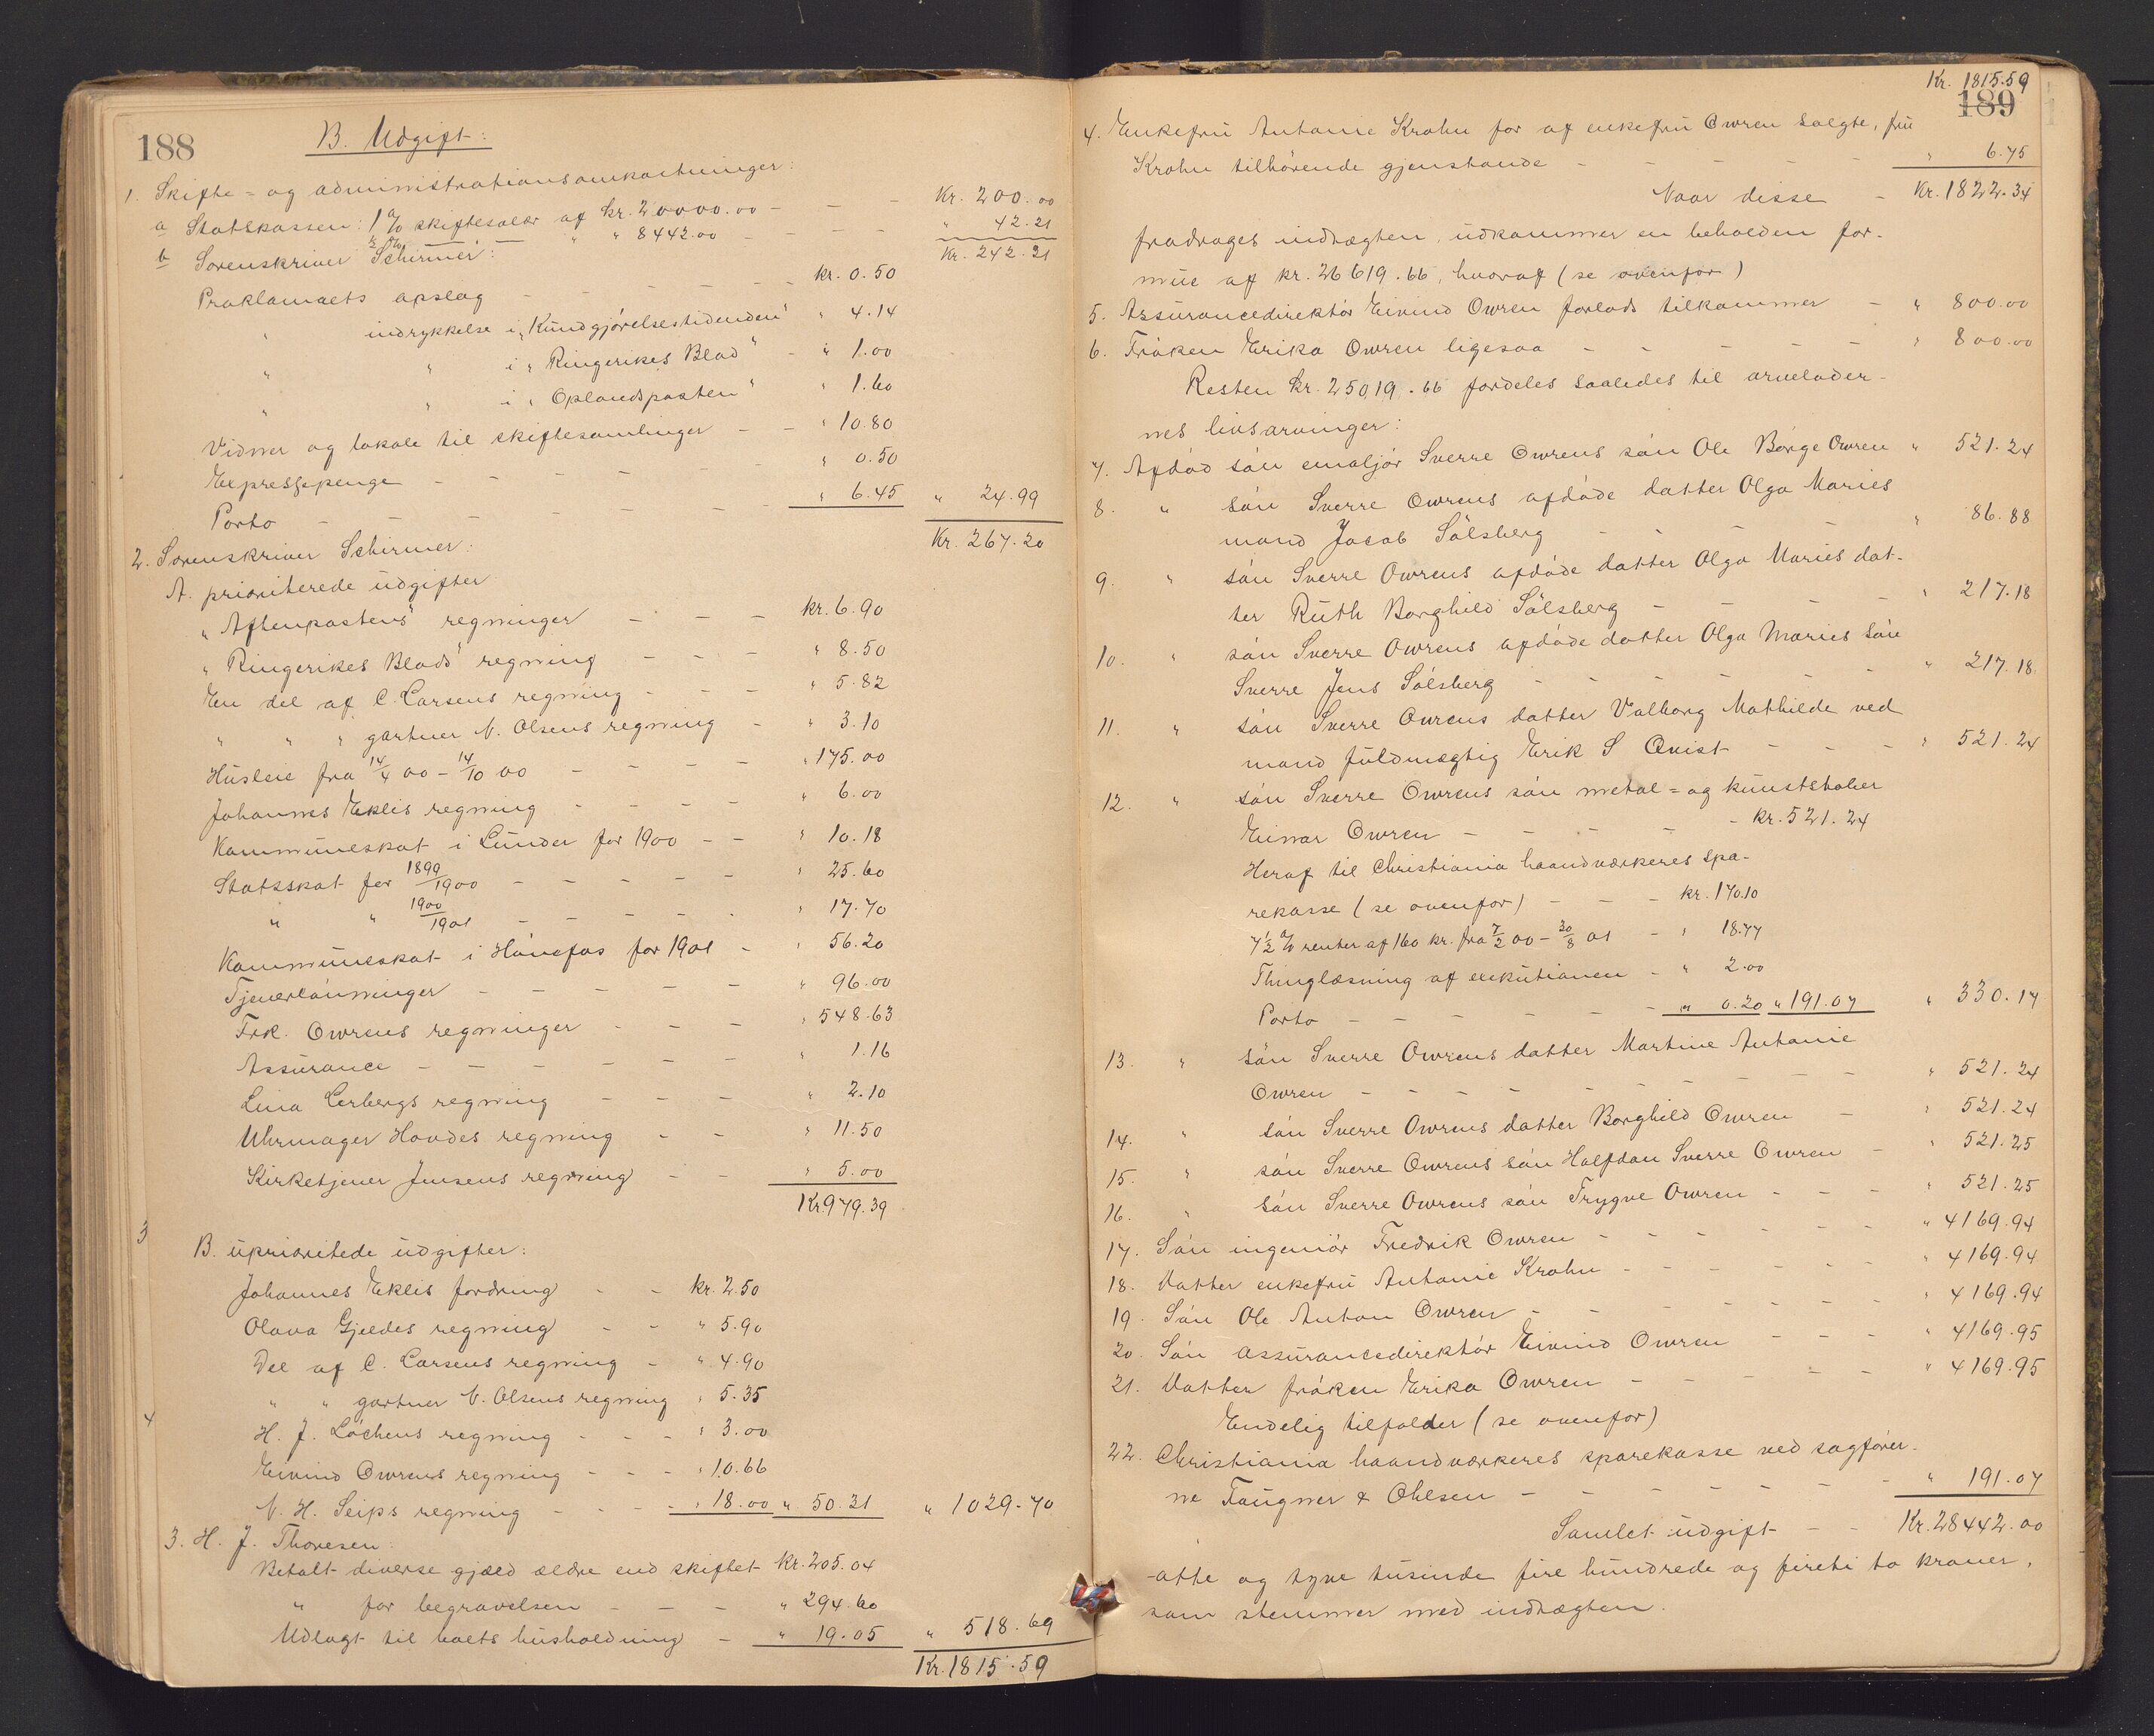 188
B. Udgift:
1. Skifte= og administrationsomkostninger:
a Statskassen: 1 % skiftesalær af kr. 20000.00 - - - Kr. 200.00
½ % — — " " 8442.00 - - - - " 42.21
Kr. 242.21
b Sorenskriver Schirmer:
Proklamaets opslag - - - - - - kr. 0.50
" indrykkelse i „Kundgjørelsestidenden" " 4.14
" " i „Ringerikes Blad" - " 1.00
" " i „Oplandsposten" " 1.60
Vidner og lokale til skiftesamlinger - - " 10.80
Expressepenge - - - - - - " 0.50
Porto - - - - - - - " 6.45 " 24.99
Kr. 267.20
2. Sorenskriver Schirmer:
A. prioriterede udgifter
„Aftenpostens" regninger - - - kr. 6.90
„Ringerikes Blads" regning - - - " 8.50
En del af C. Larsens regning - - - " 5.82
" " " gartner N. Olsens regning - " 3.10
Husleie fra 14/4 00 - 14/10 00 - - - - " 175.00
Johannes Eklis regning - - - - " 6.00
Kommuneskat i Lunder for 1900 - - " 10.18
Statsskat for 1899/1900 - - - - - " 25.60
" " 1900/1901 - - - - - " 17.70
Kommuneskat i Hönefos for 1901 - " 56.20
Tjenerlönninger - - - - - " 96.00
Frk. Owrens regninger - - - " 548.63
Assurance - - - - - - " 1.16
Lina Lerbergs regning - - - " 2.10
Uhrmager Hovdes regning - - " 11.50
Kirketjener Jensens regning - - " 5.00
Kr. 979.39
3
B. uprioritede udgifter:
Johannes Eklis fordring - - kr. 2.50
Olava Gjeldes regning - - " 5.90
Del af C. Larsens regning - " 4.90
" " gartner N. Olsens regning " 5.35
4
H. J. Löchens regning - - - " 3.00
Eivind Owrens regning - - - " 10.66
N. H. Seips regning - - - - " 18.00 " 50.31 " 1029.70
3. H. J. Thoresen:
Betalt diverse gjæld ældre end skiftet kr. 205.04
" for begravelsen - - - " 294.60
Udlagt til boets husholdning - " 19.05 " 518.69
Kr. 1815.59
Kr. 1815.59
189
4. Enkefru Antonie Krohn for af enkefru Owren solgte, fru
Krohn tilhörende gjenstande - - - - - " 6.75
Naar disse - Kr. 1822.34
fradrages indtægten, udkommer en beholden for-
mue af kr. 26619.66, hvoraf (se ovenfor)
5. Assurancedirektör Eivind Owren forlods tilkommer - " 800.00
6. Fröken Erika Owren ligesaa - - - - - " 800.00
Resten kr. 25019.66 fordeles saaledes til arvelader-
nes livsarvinger:
7. Afdöd sön emaljör Sverre Owrens sön Ole Börge Owren " 521.24
8. " sön Sverre Owrens afdöde datter Olga Maries
mand Jacob Sölsberg - - - - " 86.88
9. " sön Sverre Owrens afdöde datter Olga Maries dat-
ter Ruth Borghild Sölsberg - - - - " 217.18
10. " sön Sverre Owrens afdöde datter Olga Maries sön
Sverre Jens Sölsberg - - - - - - " 217.18
11. " sön Sverre Owrens datter Valborg Mathilde ved
mand fuldmægtig Erik S Qvist - - - " 521.24
12. " sön Sverre Owrens sön metal= og kunststöber
Einar Owren - - - - - kr. 521.24
Heraf til Christiania haandværkeres spa-
rekasse (se ovenfor) - - - kr. 170.10
7½ % renter af 160 kr. fra 7/2 00 - 30/8 01 - " 18.77
Thinglæsning af exekutionen - " 2.00
Porto - - - - - - - " 0.20 " 191.07 " 330.17
13. " sön Sverre Owrens datter Martine Antonie
Owren - - - - - - - - - " 521.24
14. " sön Sverre Owrens datter Borghild Owren - " 521.24
15. " sön Sverre Owrens sön Halfdan Sverre Owren - " 521.25
16. " sön Sverre Owrens sön Trygve Owren - - - " 521.25
17. Sön ingeniör Fredrik Owren - - - - - - " 4169.94
18. Datter enkefru Antonie Krohn - - - - - - " 4169.94
19. Sön Ole Anton Owren - - - - - - - " 4169.94
20. Sön assurancedirektör Eivind Owren - - - " 4169.95
21. Datter fröken Erika Owren - - - - - " 4169.95
Endelig tilfalder (se ovenfor)
22. Christiania haandværkeres sparekasse ved sagförer-
ne Faugner & Ohlsen - - - - - - - " 191.07
Samlet udgift - - Kr. 28442.00
-otte og tyve tusinde fire hundrede og firti to kroner,
som stemmer med indtægten.